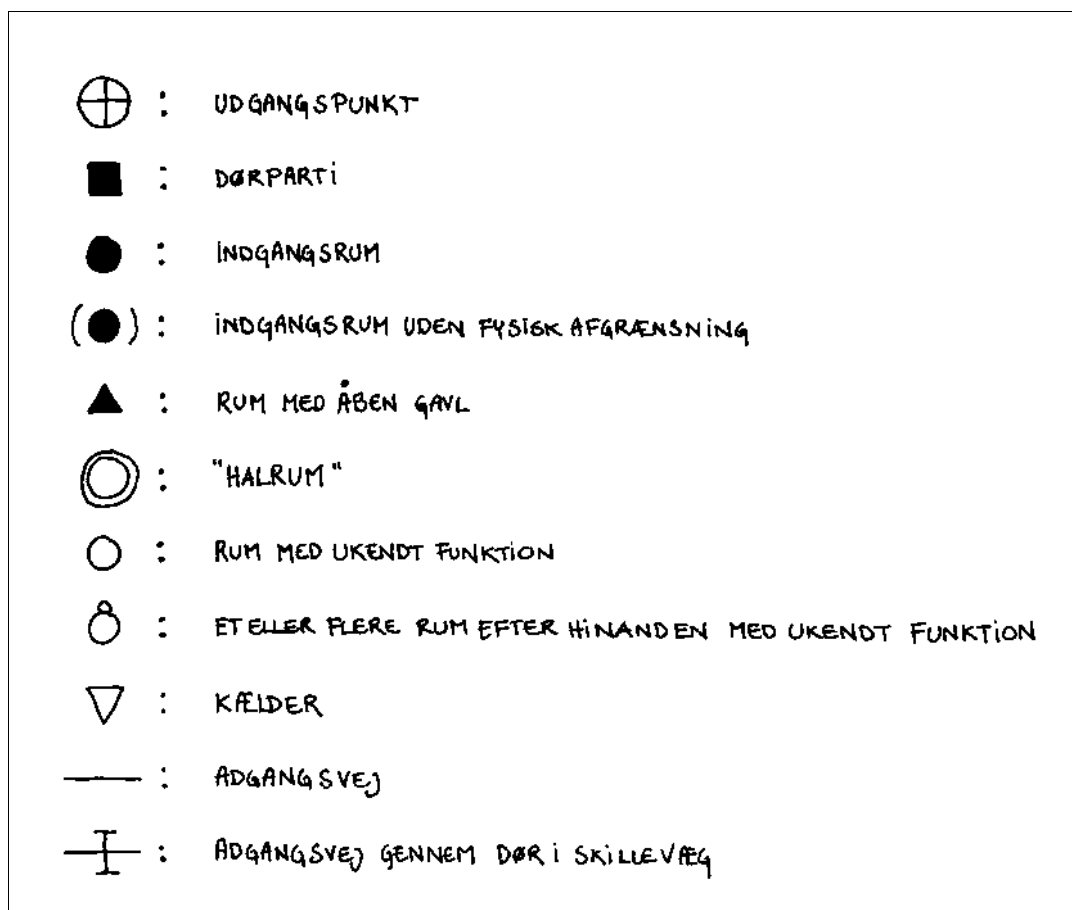 : UDGANGSPUNKT
: DØRPARTI
: INDGANGSRUM
( ) : INDGANGSRUM UDEN FYSISK AFGRÆNSNING
: RUM MED ÅBEN GAVL
: "HALRUM"
: RUM MED UKENDT FUNKTION
: ET ELLER FLERE RUM EFTER HINANDEN MED UKENDT FUNKTION
: KÆLDER
: ADGANGSVEJ
: ADGANGSVEJ GENNEM DØR I SKILLEVÆG